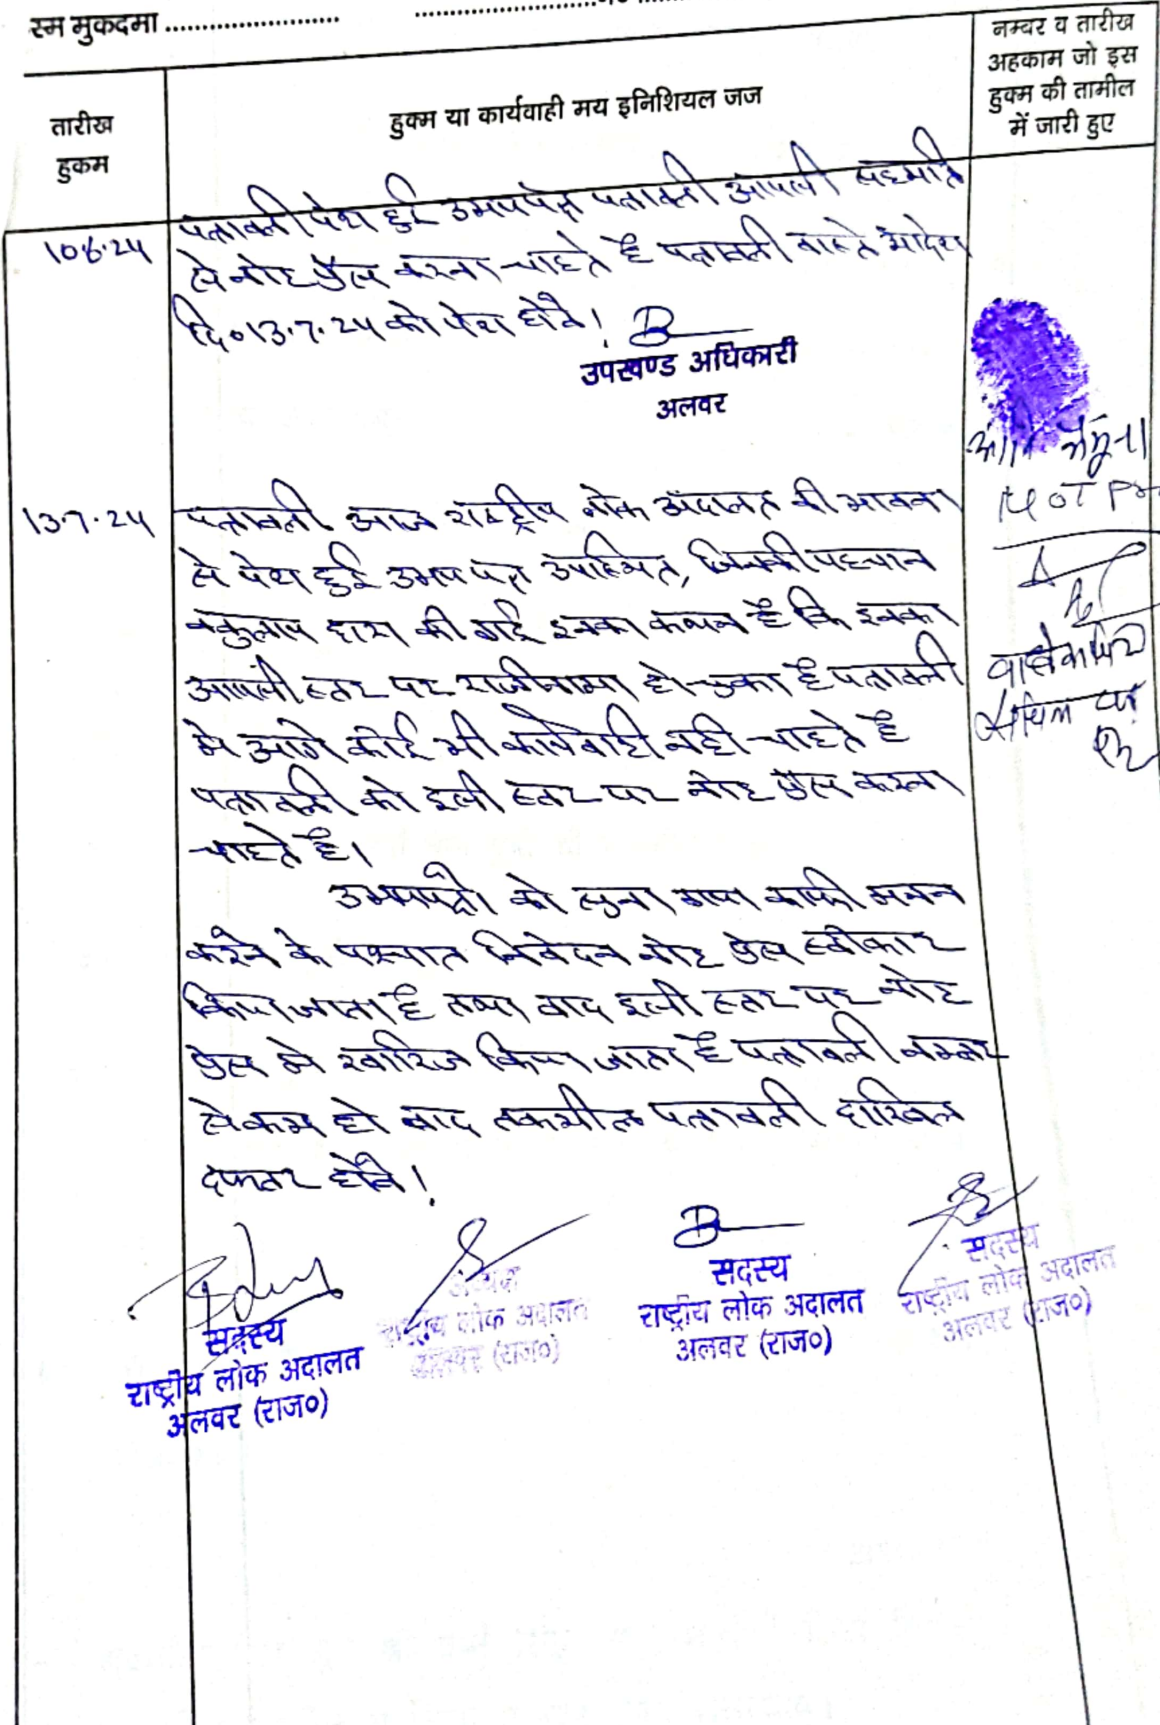 स्म मुकदमा ....................
तारीख
हुकम
हुक्म या कार्यवाही मय इनिशियल जज
नम्बर व तारीख
अहकाम जो इस
हुक्म की तामील
में जारी हुए
पत्रावली पेश हुई उभयपक्ष पत्रावली आपसी सहमति
से नोट प्रेस करना चाहते है पत्रावली वास्ते आदेश
दि० 13.7.24 को पेश होवे।
उपखण्ड अधिकारी
अलवर
13.7.24
पत्रावली आज राष्ट्रीय लोक अदालत की भावना
से पेश हुई उभय पक्ष उपस्थित, जिनकी पहचान
द्वारा की गई इनका कथन है कि इनका
आपसी स्तर पर राजीनामा हो चुका है पत्रावली
मे आगे कोई भी कार्यवाही नही चाहते है
पत्रावली को इसी स्तर पर नोट प्रेस करना
चाहते है।
उभयपक्षो को सुना गया काफी मनन
करने के पश्चात निवेदन नोट प्रेस स्वीकार
किया जाता है तथा वाद इसी स्तर पर नोट
प्रेस मे खारिज किया जाता है पत्रावली नम्बर
से कम हो बाद तकमील पत्रावली दाखिल
दफ्तर होवे।
सदस्य
राष्ट्रीय लोक अदालत
अलवर (राज०)
अध्यक्ष
राष्ट्रीय लोक अदालत
अलवर (राज०)
सदस्य
राष्ट्रीय लोक अदालत
अलवर (राज०)
सदस्य
राष्ट्रीय लोक अदालत
अलवर (राज०)